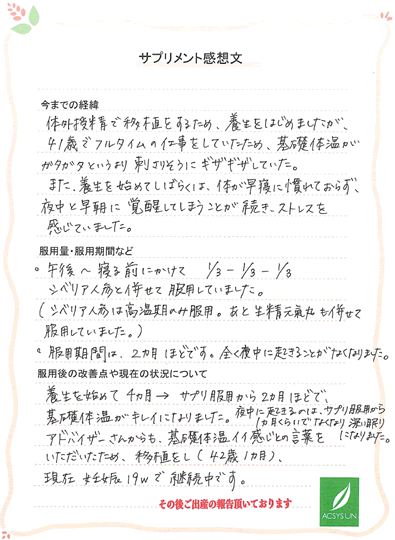 サプリメント感想文
今までの経緯
体外授精で移植をするため、養生をはじめましたが、
41歳でフルタイムの仕事をしていたため、基礎体温が
ガタガタというより 刺さりそうに ギザギザしていた。
また、養生を始めてしばらくは、体が早寝に慣れておらず、
夜中と早朝に 覚醒してしまうことが続き、ストレスを
感じていました。
服用量・服用期間など
。午後〜寝る前にかけて 1/3-1/3-1/3
シベリア人参と併せて服用していました。
(シベリア人参は高温期のみ服用。あと生精元氣丸も併せて
服用していました。)
。服用期間は、2カ月ほどです。全く夜中に起きることがなくなりました。
服用後の改善点や現在の状況について
養生を始めて4カ月→サプリ服用から2カ月ほどで、
基礎体温がキレイになりました。夜中に起きるのは、サプリ服用から
1カ月くらいでなくなり 深い眠り
になりました。
アドバイザーさんからも、基礎体温イイ感じとの言葉を
いただいたため、移植をし(42歳1カ月)、
現在 妊娠19wで継続中です。
その後ご出産の報告頂いております
ACSYSUN